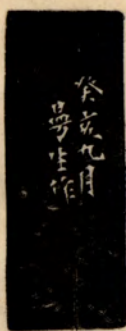 癸亥九月
曼生作